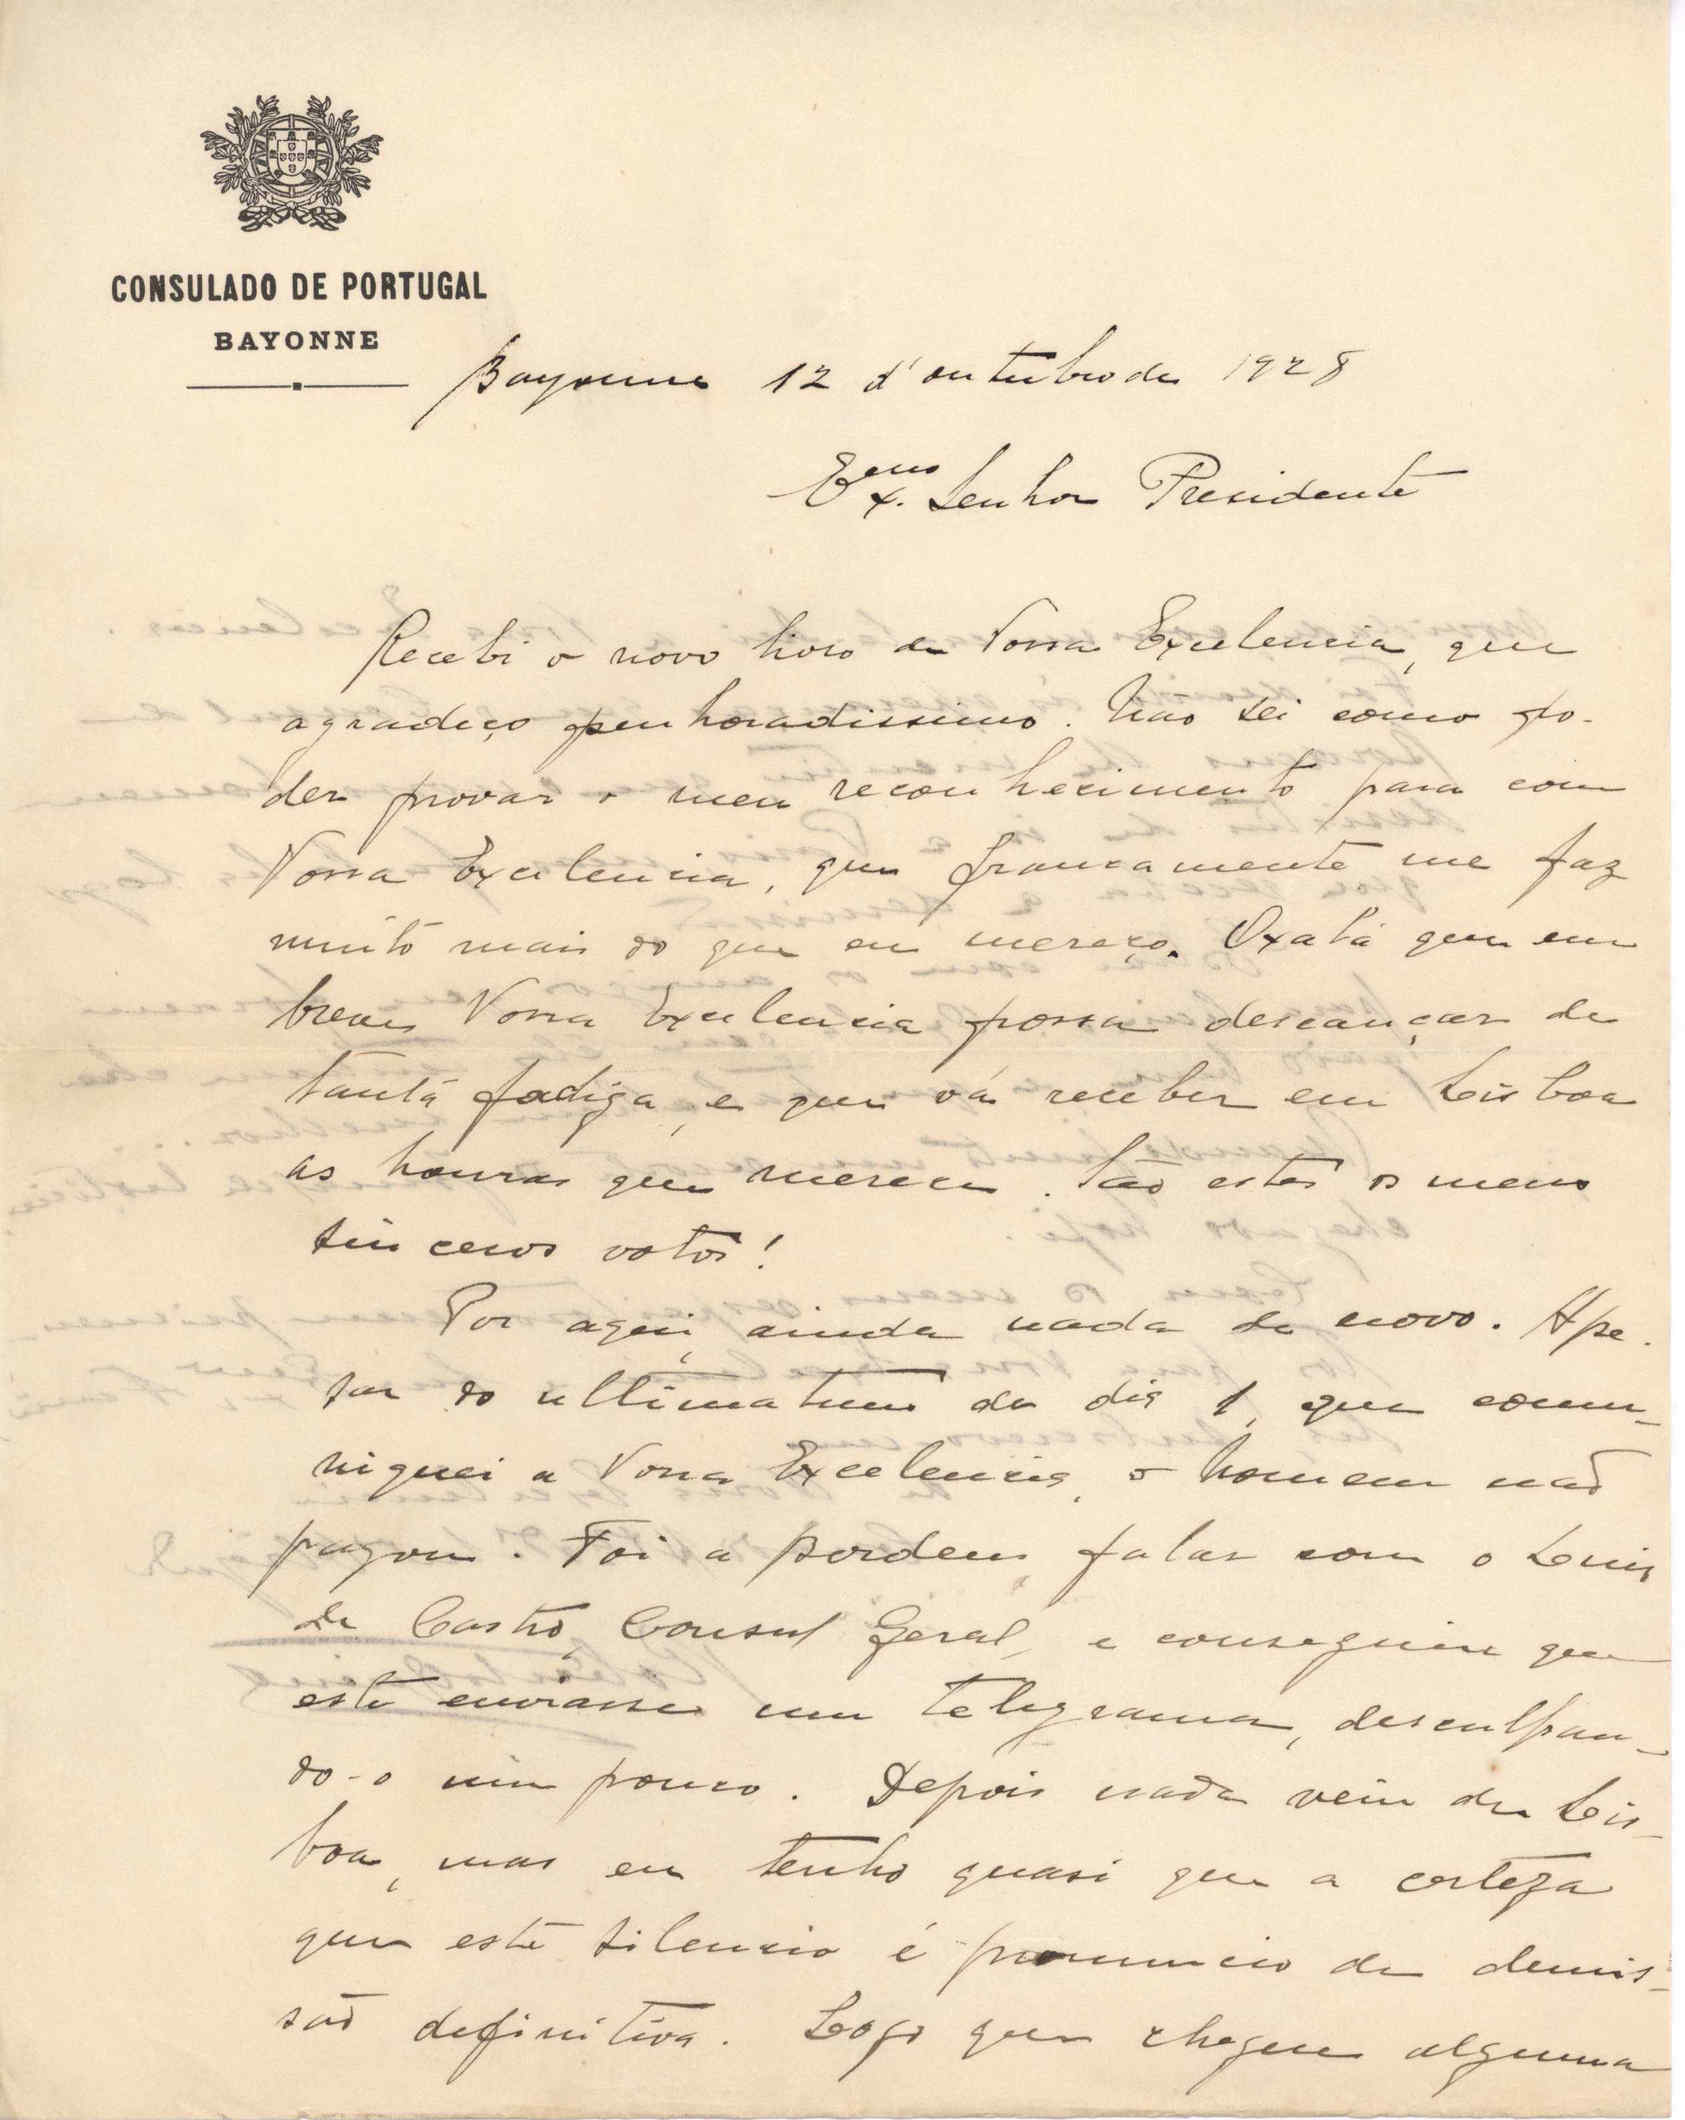 CONSULADO DE PORTUGAL
BAYONNE
Bayonne 12 d'outubro de 1928
Exmo. Senhor Presidente
Recebi o novo livro de Vossa Excelencia, que
agradeço penhoradissimo. Não sei como po-
der provar o meu reconhecimento para com
Vossa Excelencia, que francamente me faz
muito mais do que eu mereço. Oxalá que em
breve Vossa Excelencia possa descançar de
tanta fadiga, e que vá receber em Lisboa
as honras que merece. São estes os meus
sinceros votos!
Por aqui, ainda nada de novo. Ape-
sar do ultimatum do dia 1, que comu-
niquei a Vossa Excelencia, o homem não
pagou. Foi a Bordeus, falar com o Luis
de Castro, Consul Geral, e conseguiu que
este enviasse um telegrama, desculpan-
do-o um pouco. Depois nada veiu de Lis-
boa, mas eu tenho quasi que a certeza
que este silencio é prenuncio de demis-
são definitiva. Logo que chegue alguma